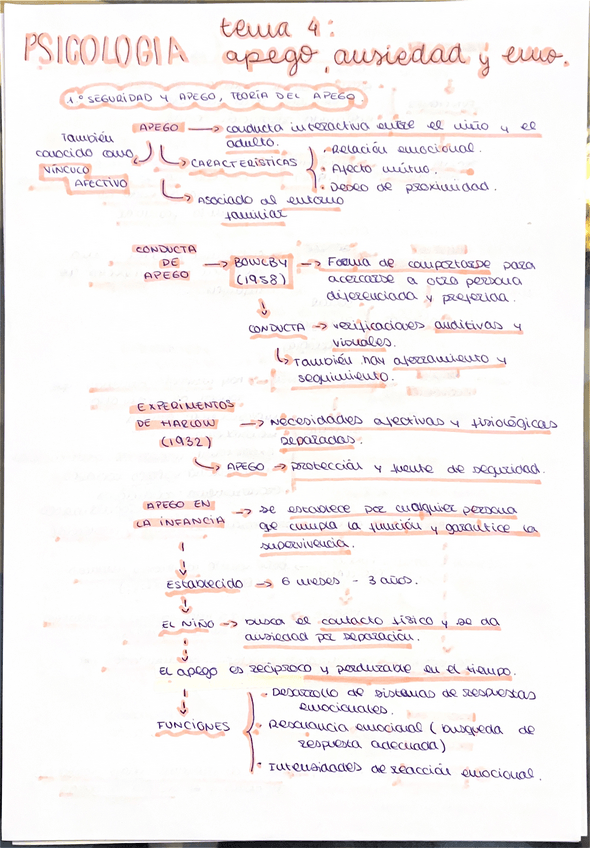 PSICOLOGIA
tema 4:
apego, ansiedad y emo.
1.º SEGURIDAD Y APEGO, TEORÍA DEL APEGO.
APEGO → conducta interactiva entre el niño y el
adulto.
También
conocido como
VÍNCULO
AFECTIVO
CARACTERÍSTICAS
· Relación emocional.
· Afecto mútuo.
· Deseo de proximidad.
Asociado al entorno
familiar
CONDUCTA
DE
APEGO
→ BOWLBY
(1958)
→ Forma de comportarse para
acercarse a otra persona
diferenciada y preferida.
CONDUCTA → verificaciones auditivas y
visuales.
↳ También hay aferramiento y
seguimiento.
EXPERIMENTOS
DE HARLOW
(1932)
→ Necesidades afectivas y fisiológicas
separadas.
↳ APEGO → protección y fuente de seguridad.
APEGO EN
LA INFANCIA
→ se establece por cualquier persona
qe cumpla la función y garantice la
supervivencia.
Establecido → 6 meses - 3 años.
EL NIÑO → busca el contacto físico y se da
ansiedad por separación.
El apego es recíproco y perdurable en el tiempo.
FUNCIONES
· Desarrollo de sistemas de respuestas
emocionales.
· Resonancia emocional (busqueda de
respuesta adecuada)
· Intensidades de reacción emocional.